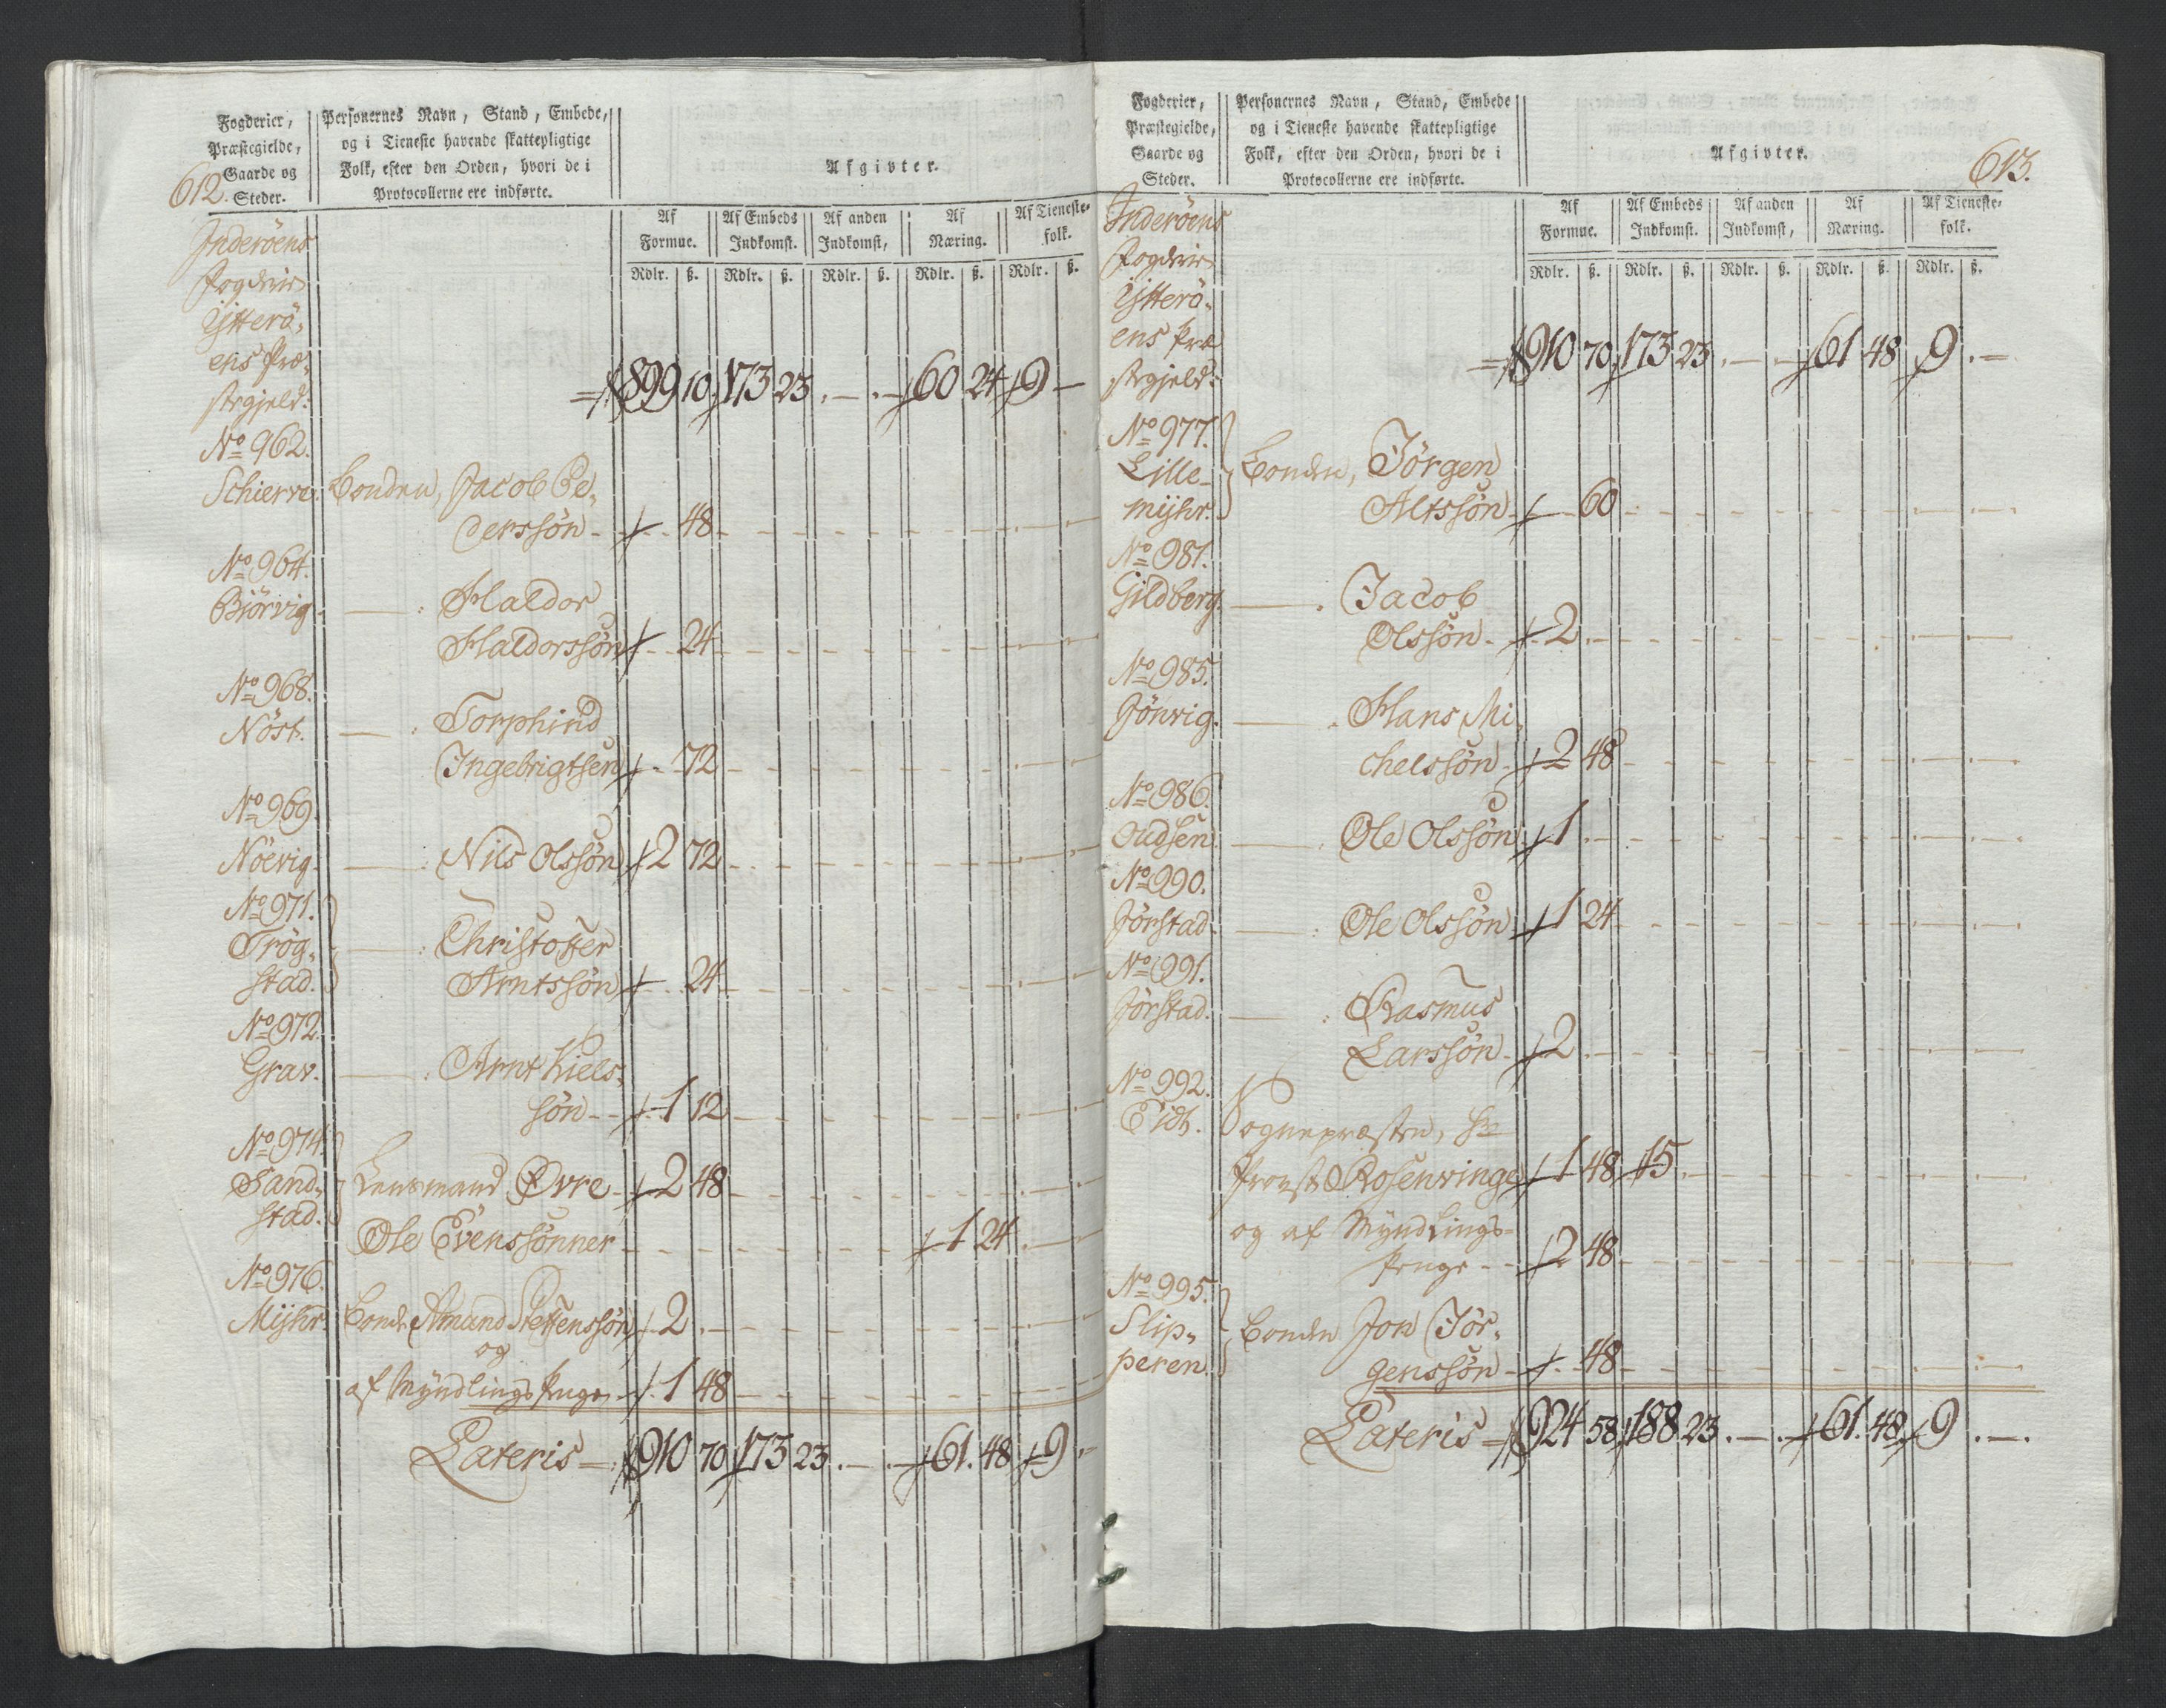 612.
Fogderier,
Præstegielde,
Gaarde og
Steder.
Personernes Navn, Stand, Embede,
og i Tieneste havende skattepligtige
Folk, efter den Orden, hvori de i
Protocollerne ere indførte.
Afgivter.
Af Formue. Af Embeds Indkomst. Af anden Indkomst, Af Næring. Af Tieneste-folk.
Rdlr. ß. Rdlr. ß. Rdlr. ß. Rdlr. ß. Rdlr. ß.
Inderöens
Fogderie
Ytterö-
ens Præ-
stegjeld: 899 10 173 23 . — . — 60 24 9 —
No 962.
Schierve. Bonden, Jacob Pe-
derssön - 48
No 964.
Biörvig — : Haldor
Haldorssön 24
No 968.
Nöst. — : Torphind
Ingebrigtsen 72
No 969.
Nöevig — : Nils Olssön 2 72
No 971.
Trög- — : Christoffer
stad. Arntssön 24
No 972.
Grav. — : Arnt Kiels-
sön - 1 12
No 974.
Sand- Lensmand Øvre 2 48
stad.
Ole Evenssönner 1 24
No 976.
Mijhr. Bonde Amund Steffenssön 2
og
af Myndlings Penge 1 48
Lateris = 910 70 173 23 . — . — 61. 48 9 . —
613.
Fogderier,
Præstegielde,
Gaarde og
Steder.
Personernes Navn, Stand, Embede
og i Tieneste havende skattepligtige
Folk, efter den Orden, hvori de i
Protocollerne ere indførte.
Afgivter.
Af Formue. Af Embeds Indkomst. Af anden Indkomst, Af Næring. Af Tieneste-folk.
Rdlr. ß. Rdlr. ß. Rdlr. ß. Rdlr. ß. Rdlr. ß.
Inderöens
Fogderie
Ytterö-
ens Præ
stegjeld: 910 70 173 23 . — . — 61 48 9 . —
No 977.
Lille- Bonden, Jörgen
mijhr. Altssön 60
No 981.
Gildberg. — . Jacob
Olssön - 2
No 985.
Jönvig. — . Hans Mi-
chelssön 2 48
No 986.
Oudsen — : Ole Olssön 1
No 990.
Jörstad. — : Ole Olssön 1 24
No 991.
Jörstad. — : Rasmus
Larssön 2
No 992.
Eidt. Sognepræsten, Hr
Provst Rosenvinge 1 48 15
og af Myndlings-
Penge - - 2 48
No 995.
Slip- Bonden Jon Jör-
peren. genssön - 48
Lateris = 924 58 188 23 . — . — 61. 48 9 . — .